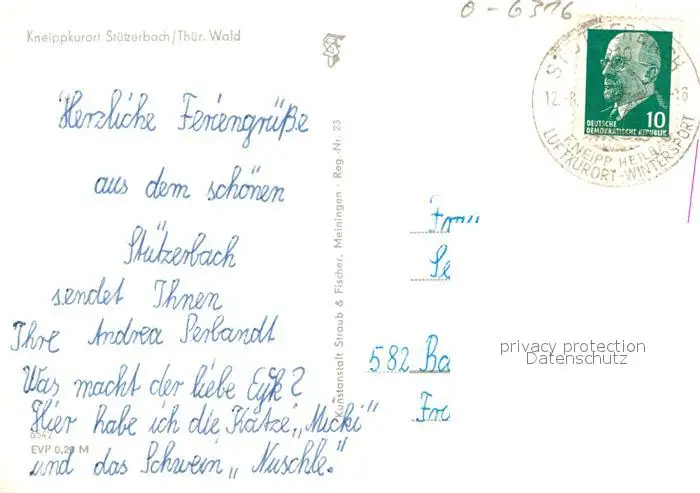 Kneippkurort Stützerbach/Thür. Wald
0-6316
Herzliche Feriengrüße
aus dem schönen
Stützerbach
sendet Ihnen
Ihre Andrea Perbandt
Was macht der liebe Eyk?
Hier habe ich die Katze „Micki"
und das Schwein „Nuschle."
6542
EVP 0,20 M
Kunstanstalt Straub & Fischer, Meiningen · Reg.-Nr. 23
STÜTZERBACH
12.-8.
-18
KNEIPP HEILBAD
LUFTKURORT-WINTERSPORT
10
DEUTSCHE
DEMOKRATISCHE REPUBLIK
582 Ba
privacy protection
Datenschutz